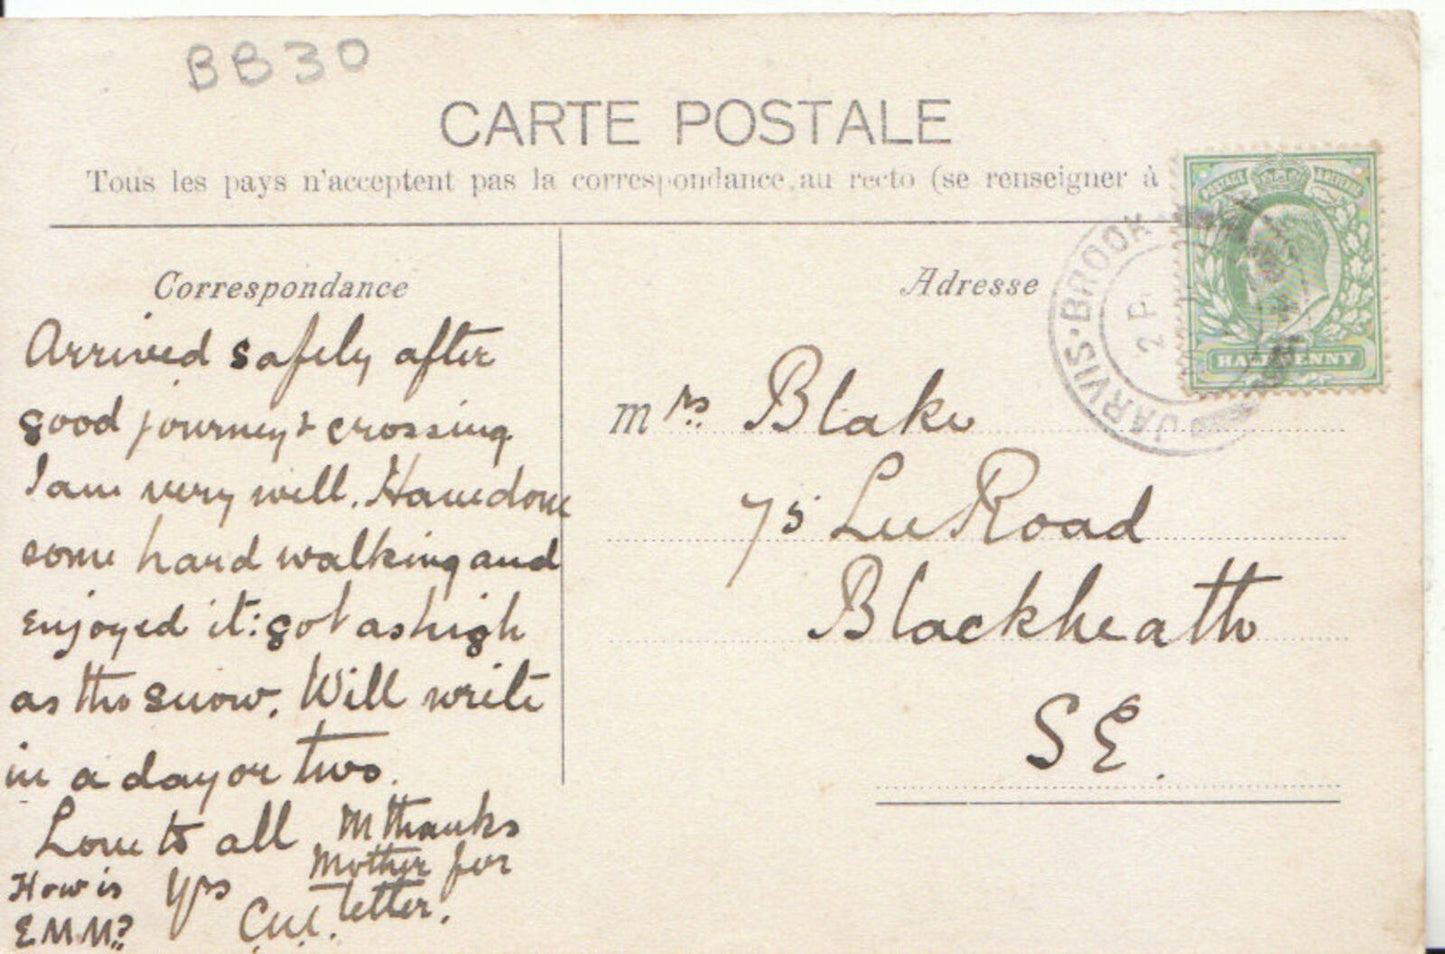 BB30
CARTE POSTALE
Tous les pays n'acceptent pas la correspondance au recto (se renseigner à
Correspondance
Arrived safely after
good journey & crossing.
I am very well. Have done
some hard walking and
enjoyed it: got as high
as the snow. Will write
in a day or two.
Love to all
Yrs
How is
E.M.M?
M thanks
Mother for
letter.
Adresse
Mrs. Blake
75 Lee Road
Blackheath
S.E.
JARVIS · BROOK
2 P
POSTAGE
HALFPENNY